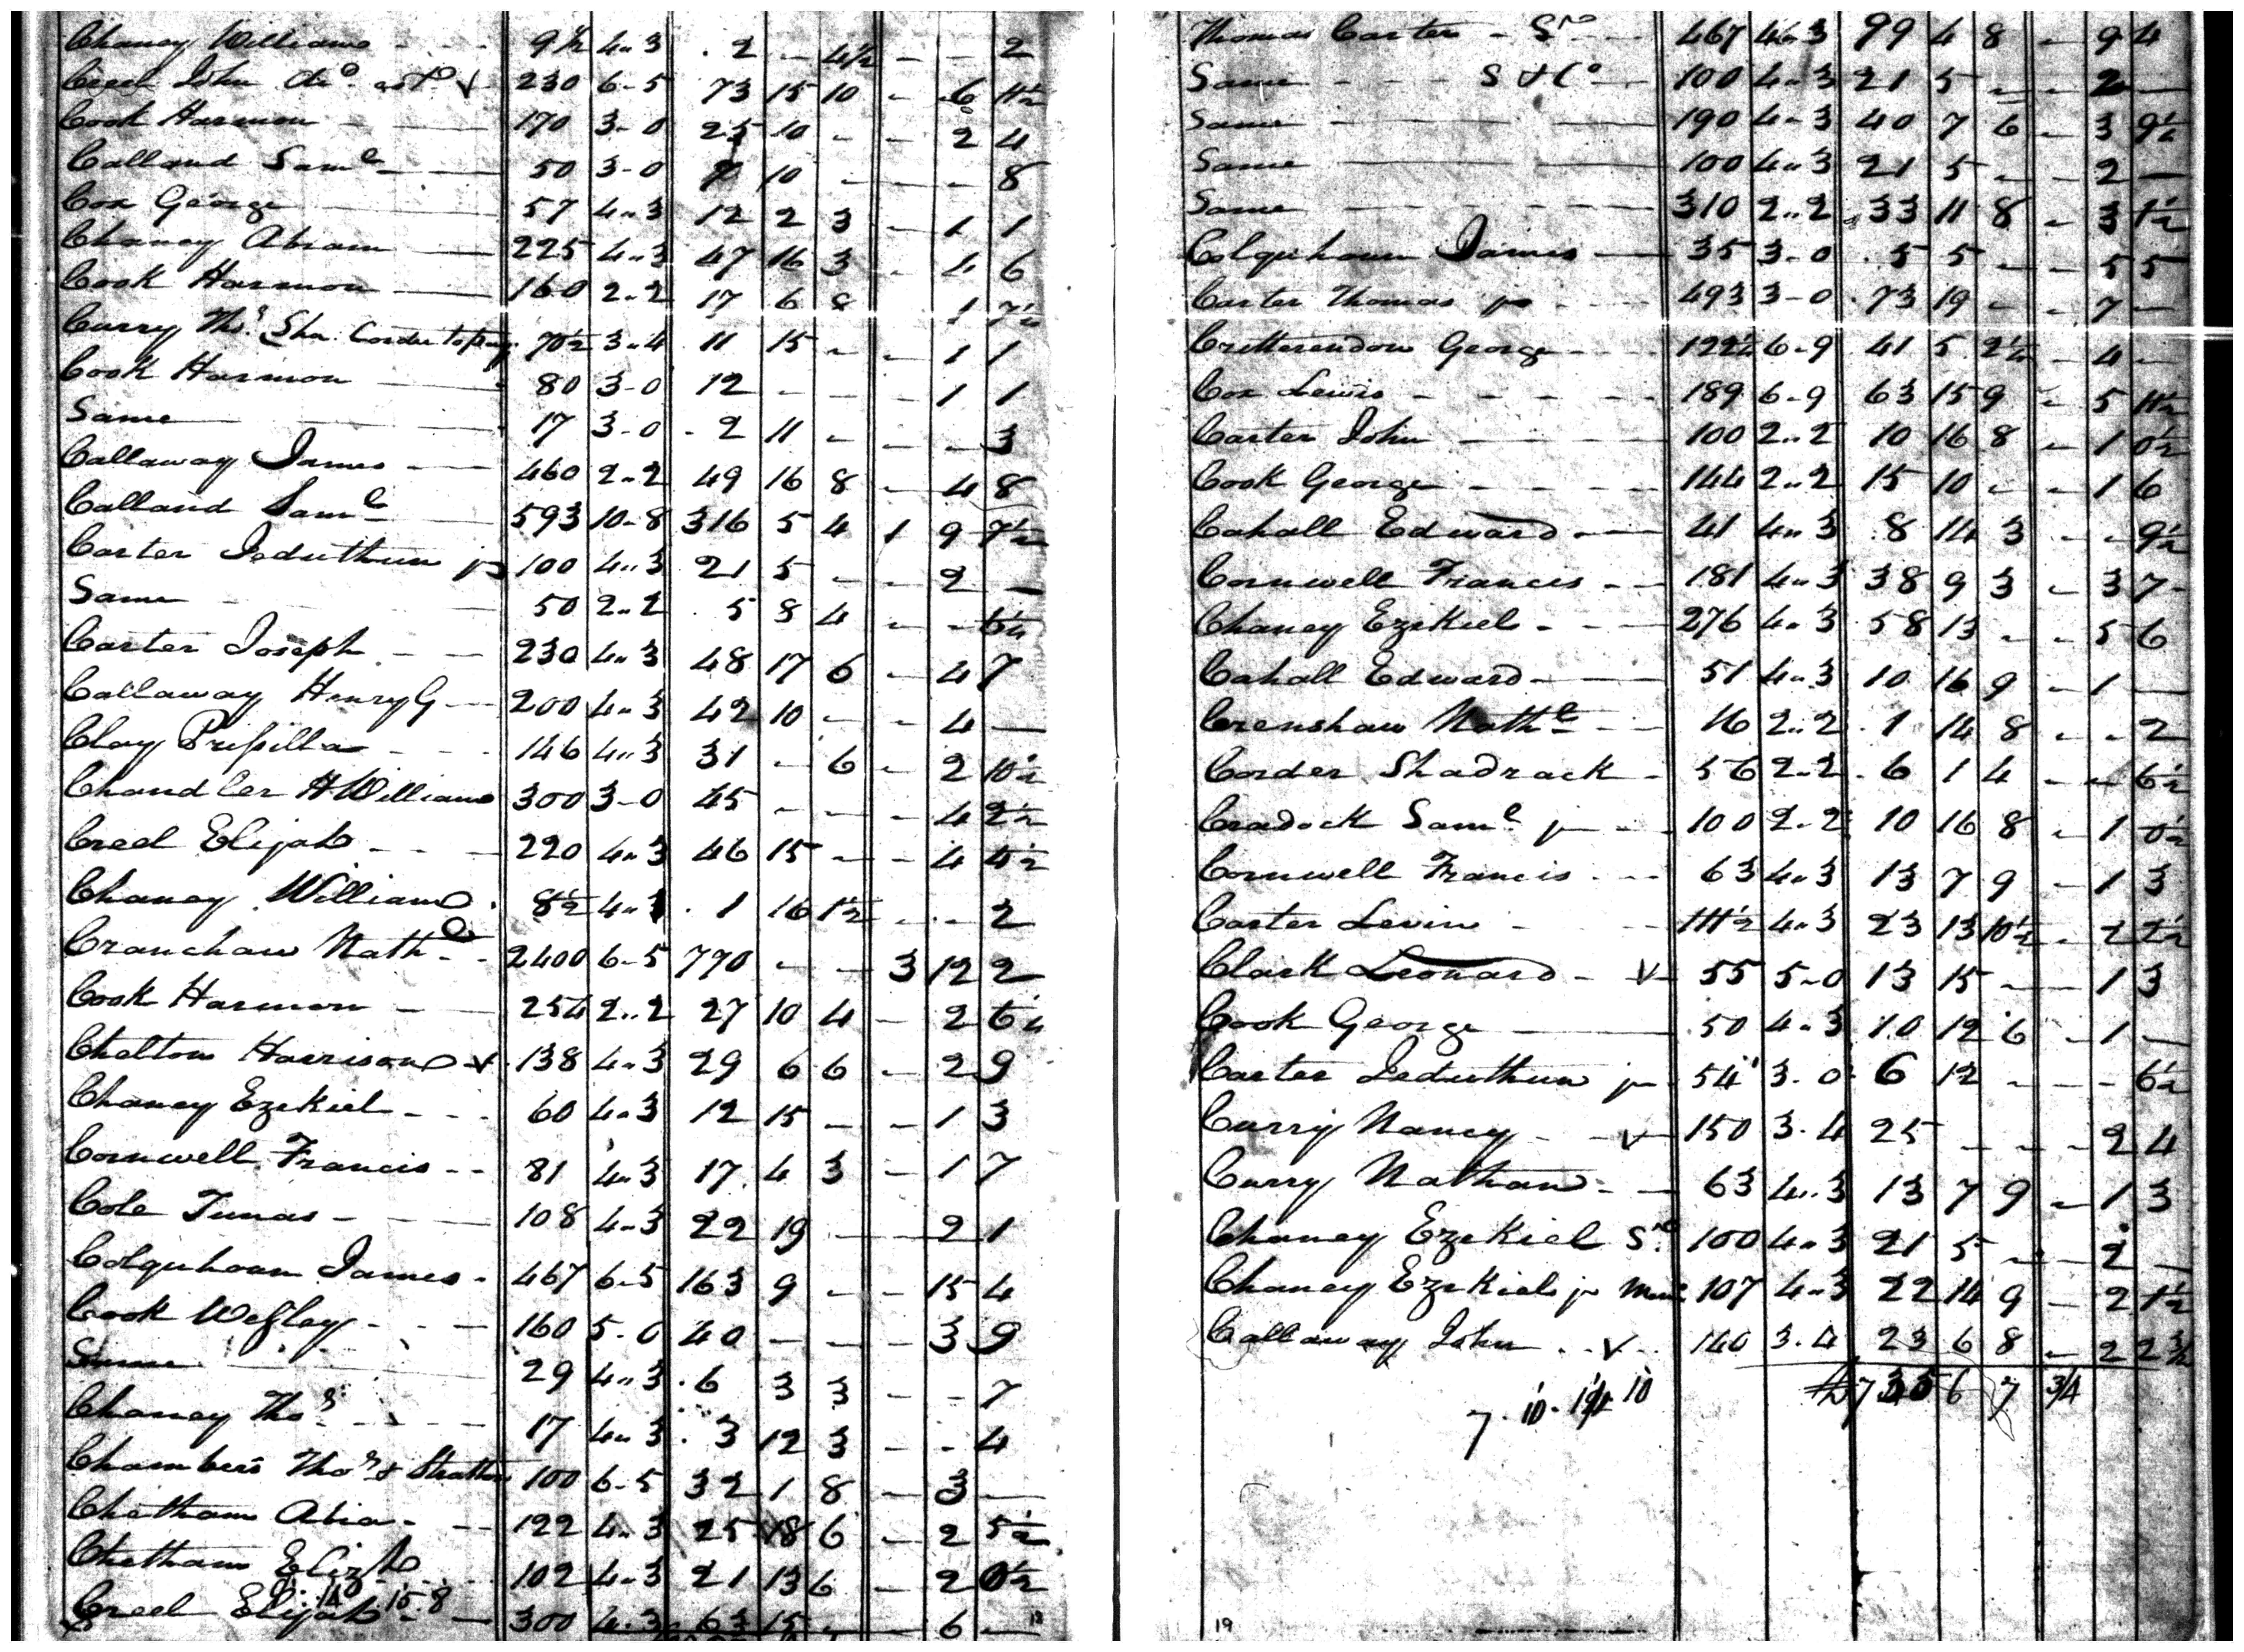 Chaney William 9½ 4..3 2 - 4½ - - 2
Creel John 230 6-5 73 15 10 - 6 11½
Cook Harmon 170 3-0 25 10 - - 2 4
Calland Saml 50 3-0 7 10 - - - 8
Cox George 57 4..3 12 2 3 - 1 1
Chaney Abram 225 4..3 47 16 3 - 4 6
Cook Harmon 160 2..2 17 6 8 1 7½
Curry Thos. Sha. Corder to pay 70½ 3..4 11 15 - - 1 1
Cook Harmon 80 3-0 12 - - - 1 1
Same 17 3-0 2 11 - - - 3
Callaway James 460 2..2 49 16 8 - 4 8
Calland Saml 593 10-8 316 5 4 1 9 7½
Carter Jeduthun jr 100 4..3 21 5 - - 2 -
Same 50 2..2 5 8 4 - - 6½
Carter Joseph 230 4..3 48 17 6 - 4 7
Callaway Henry G 200 4..3 42 10 - - 4 -
Clay Prissilla 146 4..3 31 - 6 - 2 10½
Chandler H William 300 3-0 45 - - - 4 2½
Creel Elijah 220 4..3 46 15 - - 4 4½
Chaney William 8½ 4..3 1 16 1½ - - 2
Cranchaw Nathl 2400 6-5 770 - - 3 12 2
Cook Harmon 254 2..2 27 10 4 - 2 6½
Chelton Harrison v 138 4..3 29 6 6 - 2 9
Chaney Ezekiel 60 4..3 12 15 - - 1 3
Cornwell Francis 81 4..3 17 4 3 - 1 7
Cole Tunas 108 4..3 22 19 - - 2 1
Colquhoun James 467 6-5 163 9 - - 15 4
Cook Wesley 160 5-0 40 - - - 3 9
Same 29 4..3 6 3 3 - - 7
Chaney Thos 17 4..3 3 12 3 - - 4
Chambers Thos & Stratton 100 6-5 32 1 8 - 3 -
Chetham Abia 122 4..3 25 18 6 - 2 5½
Chetham Elizh 102 4..3 21 13 6 - 2 0½
15-8
Creel Elijah 300 4..3 63 15 - 6 -
Thomas Carter Sr 467 4..3 99 4 8 - 9 4
Same S & Co 100 4..3 21 5 - - 2 -
Same 190 4..3 40 7 6 - 3 9½
Same 100 4..3 21 5 - - 2 -
Same 310 2..2 33 11 8 - 3 1½
Colquhoun James 35 3-0 5 5 - - 5 5
Carter Thomas jr 493 3-0 73 19 - - 7 -
Crittenendon George 122½ 6-9 41 5 2½ - 4 -
Cox Lewis 189 6-9 63 15 9 - 5 11½
Carter John 100 2..2 10 16 8 - 1 0½
Cook George 144 2..2 15 10 - - 1 6
Cahall Edward 41 4..3 8 14 3 - - 9½
Cornwell Francis 181 4..3 38 9 3 - 3 7
Chaney Ezekiel 276 4..3 58 13 - - 5 6
Cahall Edward 51 4..3 10 16 9 - 1 -
Crenshaw Nathl 16 2..2 1 14 8 - - 2
Corder Shadrack 56 2..2 6 1 4 - - 6½
Cradock Saml jr 100 2..2 10 16 8 - 1 0½
Cornwell Francis 63 4..3 13 7 9 - 1 3
Carter Levin 111½ 4..3 23 13 10½ - 2 2½
Clark Leonard v 55 5-0 13 15 - - 1 3
Cook George 50 4..3 10 12 6 - 1 -
Carter Jeduthun jr 54 3-0 6 12 - - - 6½
Curry Nancy v 150 3-4 25 - - - 2 4
Curry Nathan 63 4..3 13 7 9 - 1 3
Chaney Ezekiel Sr 100 4..3 21 5 - - 2 -
Chaney Ezekiel jr 107 4..3 22 14 9 - 2 1½
Callaway John v 140 3-4 23 6 8 - 2 2½
7 3/4
19